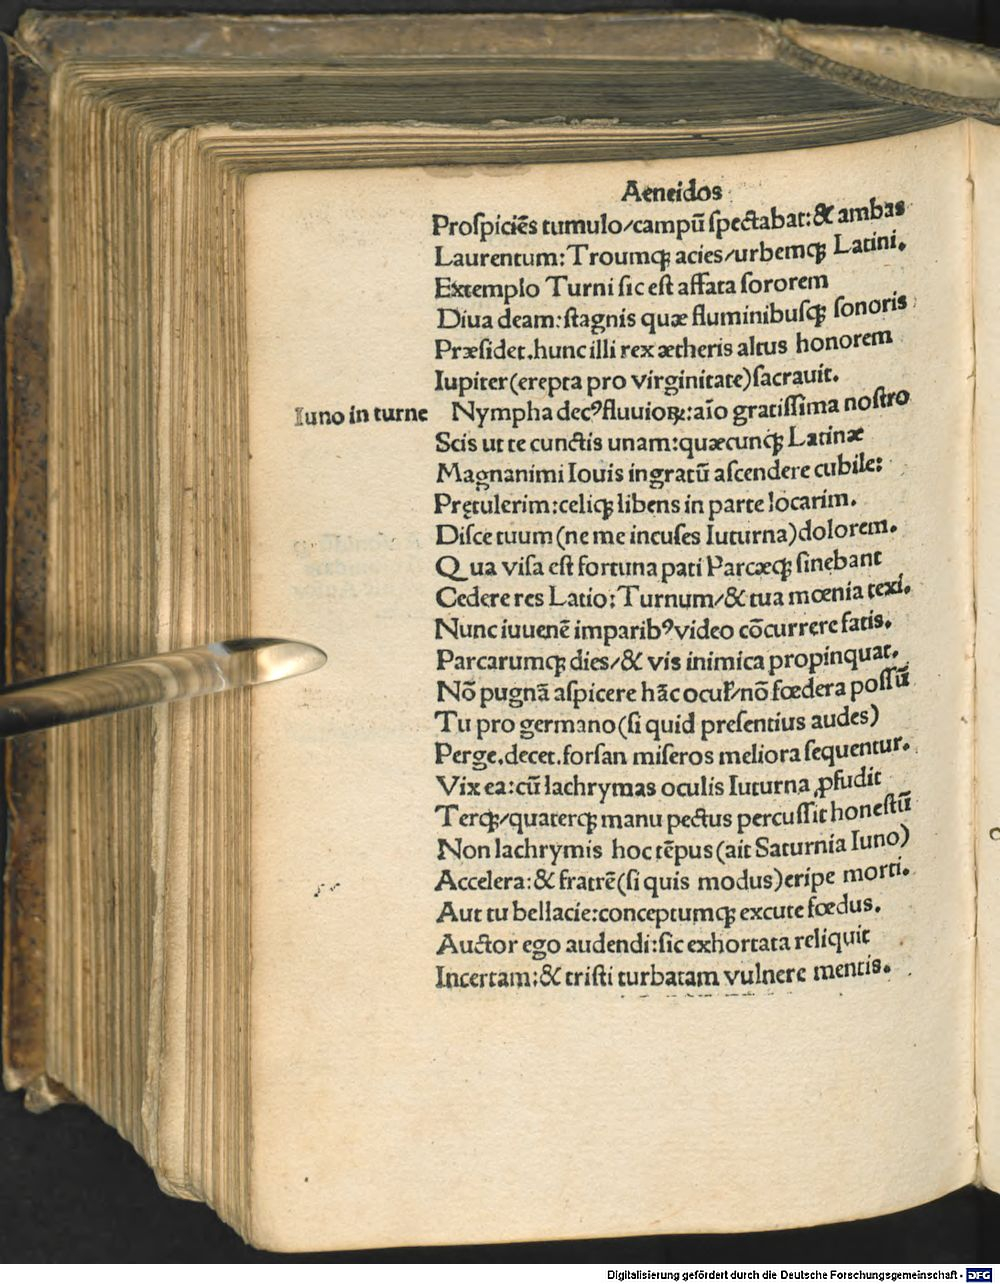 Aeneidos
Proſpiciẽs tumulo/campũ ſpectabat:& ambas
Laurentum: Troumqꝫ acies/urbemqꝫ Latini.
Extemplo Turni ſic eſt affata ſororem
Diua deam:ſtagnis quæ fluminibuſqꝫ ſonoris
Præſidet.hunc illi rex ætheris altus honorem
Iupiter(erepta pro virginitate)ſacrauit.
Iuno in turne
Nympha decꝰ fluuioꝝ:aĩo gratiſſima noſtro
Scis ut te cunctis unam:quæcunqꝫ Latinæ
Magnanimi Iouis ingratũ aſcendere cubile:
Prętulerim:celiqꝫ libens in parte locarim.
Diſce tuum(ne me incuſes Iuturna)dolorem.
Qua viſa eſt fortuna pati Parcæqꝫ ſinebant
Cedere res Latio:Turnum/& tua mœnia texi.
Nunc iuuenẽ imparibꝰ video cõcurrere fatis.
Parcarumqꝫ dies/& vis inimica propinquat.
Nõ pugnã aſpicere hãc ocuł/nõ fœdera poſſũ
Tu pro germano(ſi quid preſentius audes)
Perge.decet.forſan miſeros meliora ſequentur.
Vix ea:cũ lachrymas oculis Iuturna ꝓfudit
Terqꝫ/quaterqꝫ manu pectus percuſſit honeſtũ
Non lachrymis hoc tẽpus(ait Saturnia Iuno)
Accelera:& fratrẽ(ſi quis modus)eripe morti.
Aut tu bella cie:conceptumqꝫ excute fœdus.
Auctor ego audendi:ſic exhortata reliquit
Incertam:& triſti turbatam vulnere mentis.
Digitalisierung gefördert durch die Deutsche Forschungsgemeinschaft - DFG